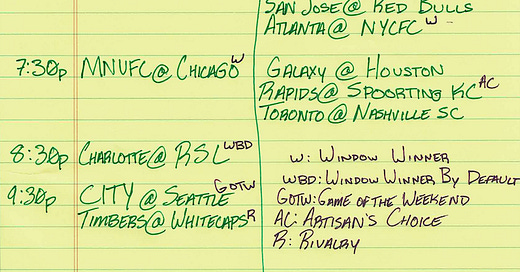 SAN JOSE @ RED BULLS
ATLANTA @ NYCFC W
7:30p MNUFC @ CHICAGO W
GALAXY @ HOUSTON
RAPIDS @ SPOORTING KC AC
TORONTO @ NASHVILLE SC
8:30p CHARLOTTE @ RSL WBD
9:30p CITY @ SEATTLE GOTW
TIMBERS @ WHITECAPS R
W: WINDOW WINNER
WBD: WINDOW WINNER BY DEFAULT
GOTW: GAME OF THE WEEKEND
AC: ARTISAN'S CHOICE
R: RIVALRY